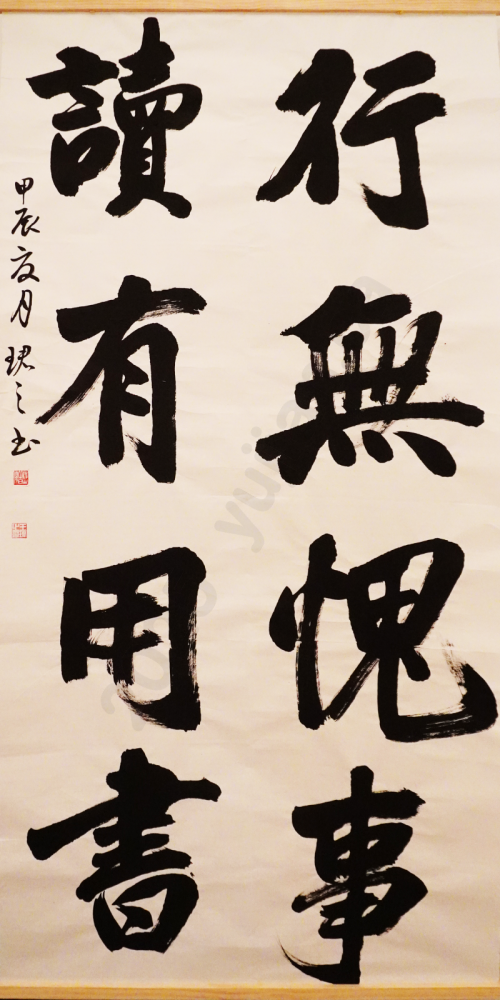 行無愧事
讀有用書
甲辰夏月珺之书